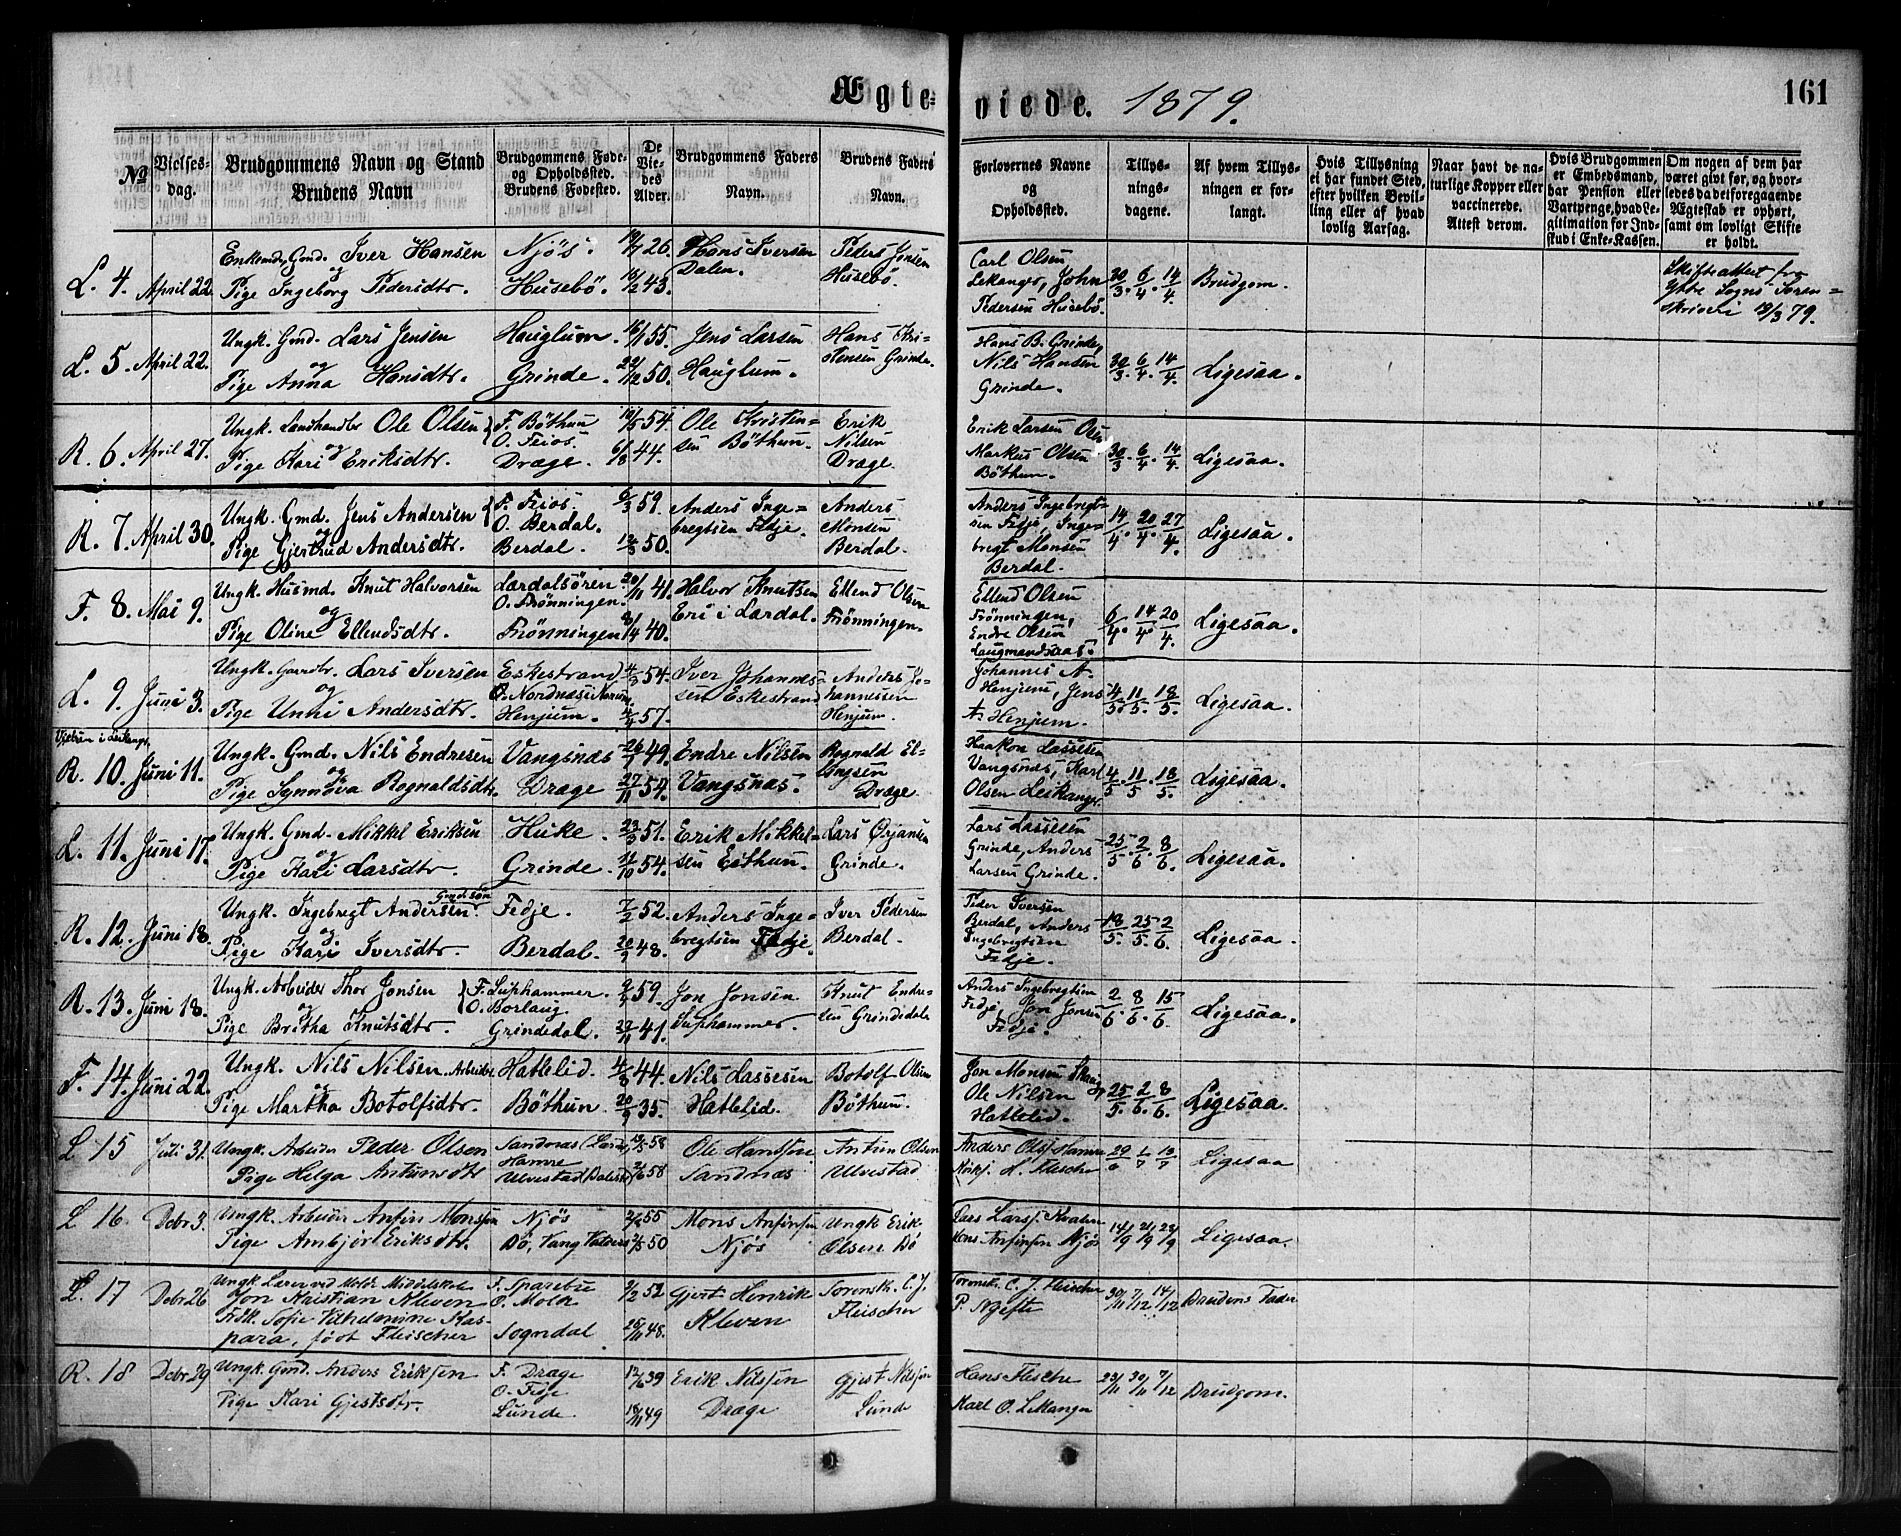 Ægte-
viede. 1879.
161
No
Vielses-
dag.
Brudgommens Navn og Stand
Brudens Navn
Brudgommens Føde-
og Opholdssted.
Brudens Fødested.
De
Vie-
des
Alder.
Brudgommens Faders
Navn.
Brudens Faders
Navn.
Forlovernes Navne
og
Opholdssted.
Tillys-
nings-
dagene.
Af hvem Tillys-
ningen er for-
langt.
Hvis Tillysning
ei har fundet Sted,
efter hvilken Bevil-
ling eller af hvad
lovlig Aarsag.
Naar havt de na-
turlige Kopper eller
vaccinerede.
Attest derom.
Hvis Brudgommen
er Embedsmand,
har Pension eller
Vartpenge, hvad Le-
gitimation for Ind-
skud i Enke-Kassen.
Om nogen af dem har
været givt før, og hvor-
ledes da det foregaaende
Ægteskab er ophørt,
samt om lovligt Skifte
er holdt.
L. 4. April 22.
Enkemd. Gmd. Iver Hansen
og
Pige Ingeborg Pedersdtr.
Njøs.
Husebö.
26.
16/2 43.
Hans Iversen
Dalen.
Peder Jensen
Husebö.
Carl Olsen
Lekanger, John
Pedersen Husebö.
30/3. 6/4. 14/4.
Brudgom.
Skifteattest fra
Ytre Sogns Soren-
skriveri 79.
L. 5. April 22.
Ungk. Gmd. Lars Jensen
og
Pige Anna Hansdtr.
Hauglum.
Grinde.
55.
22/12 50.
Jens Larsen
Hauglum.
Hans Kri-
stensen Grinde.
Hans B. Grinde,
Nils Hansen
Grinde.
30/3. 6/4. 14/4.
Ligesaa.
R. 6. April 27.
Ungk. Landhandler Ole Olsen
og
Pige Kari Eriksdtr.
F. Böthun
O. Feios.
Dræge.
54.
6/8 44.
Ole Kristen-
sen Böthun.
Erik
Nilsen
Dræge.
Erik Larsen
Markus Olsen
Böthun.
30/3. 6/4. 14/4.
Ligesaa.
R. 7. April 30.
Ungk. Gmd. Jens Andersen
og
Pige Gjertrud Andersdtr.
F. Feios.
O. Berdal.
Berdal.
59.
50.
Anders Inge-
bregtsen Fedje.
Anders
Monsen
Berdal.
Anders Ingebregt-
sen Fedje, Inge-
bregt Monsen
Berdal.
14/4. 20/4. 27/4.
Ligesaa.
F. 8. Mai 9.
Ungk. Husmd. Knut Halvorsen
og
Pige Oline Ellendsdtr.
Lærdalsören.
O. Frönningen.
Frönningen
20/11 41.
8/4 40.
Halvor Knutsen
Eri i Lærdal.
Ellend Olsen
Frönningen.
Ellend Olsen
Frönningen,
Endre Olsen
6/4. 14/4. 20/4.
Ligesaa.
L. 9. Juni 3.
Ungk. Lars Iversen
og
Pige Unni Andersdtr.
Eskestrand
O. Nordnæs
Henjum.
54.
57.
Iver Johannes-
sen Eskestrand
Anders Jo-
hannessen
Henjum.
Johannes A.
Henjum, Jens
A. Henjum.
4/5. 11/5. 18/5.
Ligesaa.
R. 10. Juni 11.
Ungk. Gmd. Nils Endresen
og
Pige Synnöva Rognaldsdtr.
Vangsnæs
Dræge
49.
27/11 54.
Endre Nilsen
Vangsnæs.
Rognald El-
lingsen
Dræge.
Haakon Lassesen
Vangsnæs, Karl
Olsen Leikanger
4/5. 11/5. 18/5.
Ligesaa.
L. 11. Juni 17.
Ungk. Gmd. Mikkel Eriksen
og
Pige Kari Larsdtr.
Huke.
Grinde.
23/3 51.
17/10 54.
Erik Mikkel-
sen Esthun.
Lars Ørjansen
Grinde.
Lars Lassesen
Grinde, Anders
Larsen Grinde.
25/5. 2/6. 8/6.
Ligesaa.
R. 12. Juni 18.
Ungk. Ingebregt Andersen. Gmdssön
og
Pige Kari Iversdtr.
Fedje.
Berdal.
52.
48.
Anders Inge-
bregtsen Fedje.
Iver Pedersen
Berdal.
Peder Iversen
Berdal, Anders
Ingebregtsen
Fedje.
18/5. 25/5. 2/6.
Ligesaa.
R. 13. Juni 18.
Ungk. Arbeider Thor Jonsen
og
Pige Britha Knutsdtr.
F. Suphammer.
O. Borlaug.
Grindedal.
59.
41.
Jon Jonsen
Suphammer.
Knut Endre-
sen Grindedal.
Anders Ingebregtsen
Fedje, Jon Jonsen
Fedje.
2/6. 8/6. 15/6.
Ligesaa.
F. 14. Juni 22.
Ungk. Nils Nilsen. Arbeider.
og
Pige Martha Botolfsdtr.
Hattelid.
Böthun.
44.
35.
Nils Lassesen
Hattelid.
Botolf Olsen
Böthun.
Jon Monsen
Ole Nilsen
Hattelid.
25/5. 2/6. 8/6.
Ligesaa.
L 15 Juli 31.
Ungk. Arbeider Peder Olsen
Pige Helga Antunsdtr
Sandnæs
Hamre
Ulvestad
58
58
Ole Hansen
Sandnæs
Antun Olsen
Ulvestad
Anders Olsf. Hamre
H. Fleischer
29/6 6/7 13/7
Ligesaa
L 16. Decbr 3.
Ungk. Arbeider Anfin Monssen
Pige Ambjör Eriksdtr.
Njøs
Bö, Vang Valders
55
50
Mons Anfinsen
Njös
Ungk Erik
Olsen Bö
Lars Larsf. Kvalen
Mons Anfinsen Njös
14/9 21/9 28/9
Ligesaa.
L. 17 Decbr 26
Ungk. Lærer ved Molde Middelskole
Jon Kristian Kleven
Frk. Sofie Vilhelmine Kas-
para, født Fleischer
F. Sparebu
O. Molde
Sogndal
2/2 52
48.
Gjert Henrik
Kleven
Sorenskr. C. J.
Fleischer
Sorenskr. C. J. Fleischer
30/11 7/12 14/12
Brudens Fader
R. 18 Decbr. 29
Ungk. Gmd. Anders Eriksen
Pige Kari Gjestsdtr.
F. Dræge
O. Fedje
Lunde
39
18/11 49
Erik Nilsen
Dræge
Gjest Nilsen
Lunde
Hans Fleischer
Karl O. Lekanger
23/11 30/11 7/12
Brudgom.